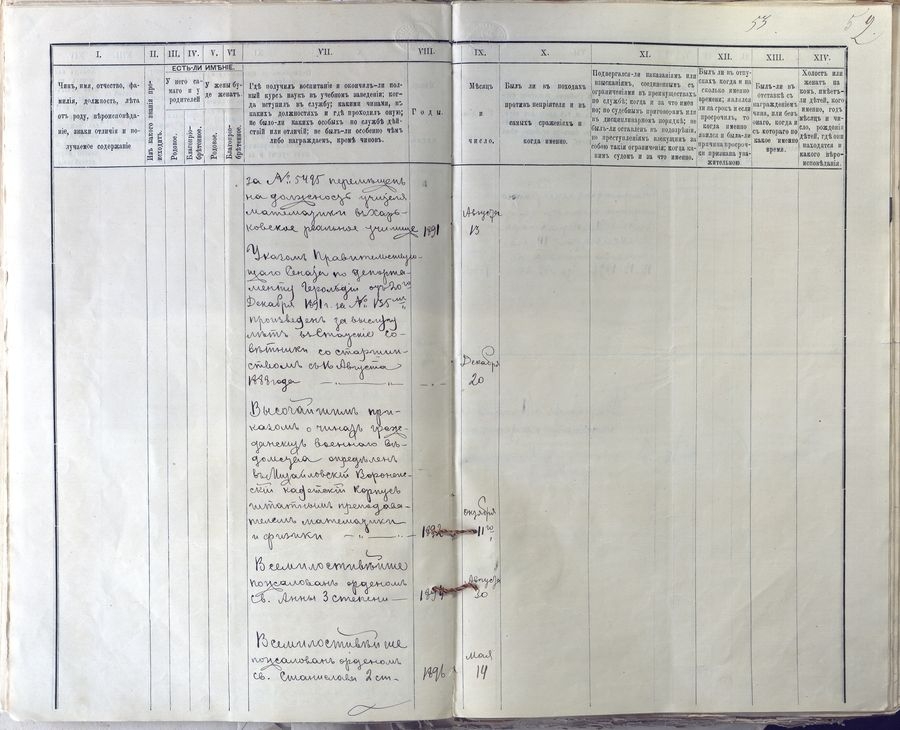 53
52
I. II. III. IV. V. VI VII. VIII. IX. X. XI. XII. XIII. XIV.
ЕСТЬ-ЛИ ИМѢНІЕ.
Чинъ, имя, отчество, фамилія, должность, лѣта отъ роду, вѣроисповѣданіе, знаки отличія и получаемое содержаніе
Изъ какого званія происходитъ.
У него самаго и у родителей
Родовое.
Благопріобрѣтенное.
У жены буде женатъ.
Родовое.
Благопріобрѣтенное.
Гдѣ получилъ воспитаніе и окончилъ-ли полный курсъ наукъ въ учебномъ заведеніи; когда вступилъ въ службу; какими чинами, въ какихъ должностяхъ и гдѣ проходилъ оную; не было-ли какихъ особыхъ по службѣ дѣйствій или отличій; не былъ-ли особенно чѣмъ либо награжденъ, кромѣ чиновъ.
Годы.
Мѣсяцъ
и
число.
Былъ ли въ походахъ противъ непріятеля и въ самыхъ сраженіяхъ и когда именно.
Подвергался-ли наказаніямъ или взысканіямъ, соединеннымъ съ ограниченіями въ преимуществахъ по службѣ; когда и за что именно; по судебнымъ приговорамъ или въ дисциплинарномъ порядкѣ; не былъ-ли оставленъ въ подозрѣніи, по преступленіямъ, влекущимъ за собою такія ограниченія; когда какимъ судомъ и за что именно.
Былъ ли въ отпускахъ, когда и на сколько именно времени; являлся ли на срокъ и если просрочилъ, то когда именно явился и была-ли причина просрочки признана уважительною.
Былъ-ли въ отставкѣ съ награжденіемъ чина, или безъ онаго, когда и съ котораго по какое именно время.
Холостъ или женатъ на комъ, имѣетъ-ли дѣтей, кого именно, годъ мѣсяцъ и число, рожденія дѣтей, гдѣ они находятся и какого вѣроисповѣданія.
за № 5495 перемѣщенъ
на должность учителя
математики въ Харь-
ковское реальное училище 1891 Августа 13
Указомъ Правительствую-
щаго Сената по департа-
менту Герольдіи отъ 20го
Декабря 1891 г. за № 135
произведенъ за выслугу
лѣтъ въ Статскіе со-
вѣтники со старшин-
ствомъ съ 16 Августа
1888 года — „ — „ — Декабря 20
Высочайшимъ при-
казомъ о чинахъ граж-
данскихъ военнаго вѣ-
домства опредѣленъ
въ Михайловскій Воронеж-
скій кадетскій корпусъ
штатнымъ преподава-
телемъ математики
и физики — „ — октября 11го
Всемилостивѣйше
пожалованъ орденомъ
Св. Анны 3 степени — Августа 30
Всемилостивѣйше
пожалованъ орденомъ
св. Станислава 2 ст- 1896 мая 14